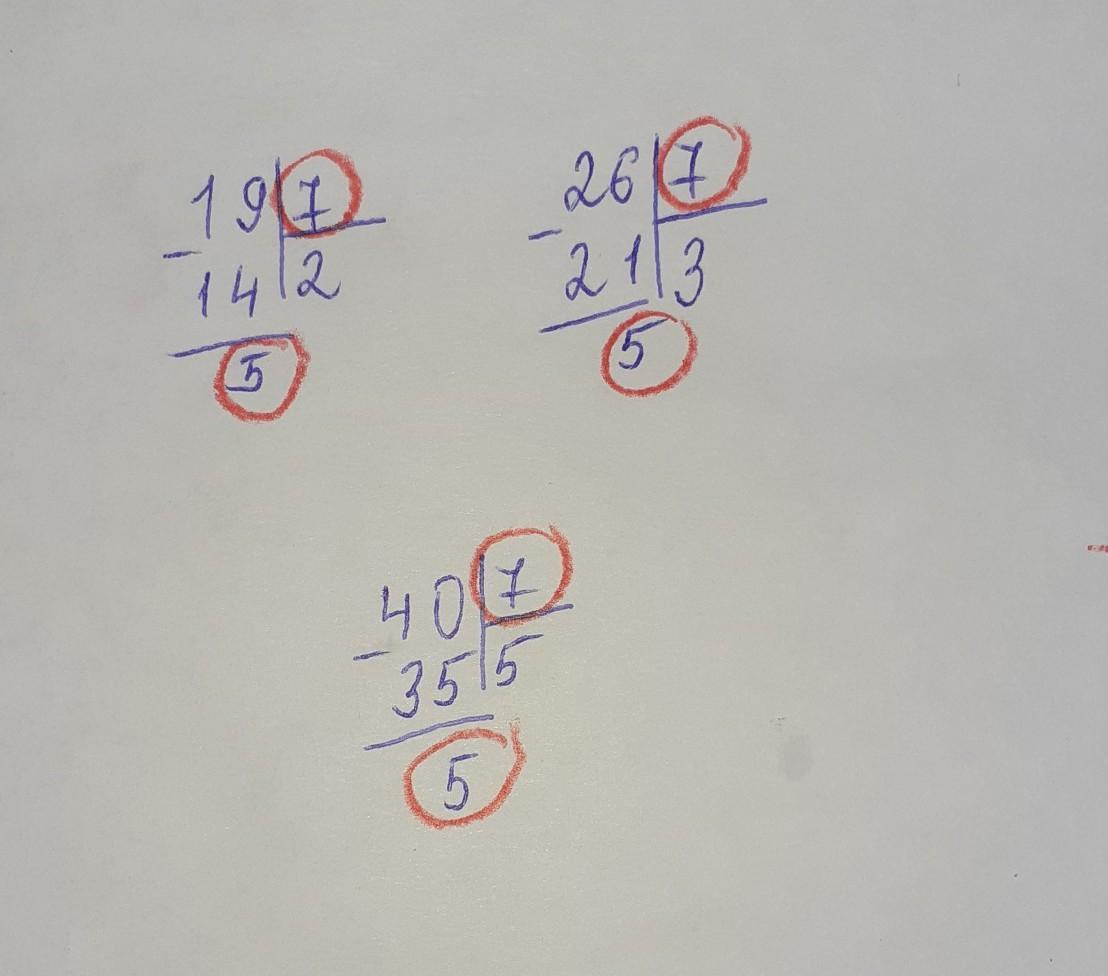 19 7
- 14 2
5
26 7
- 21 3
5
40 7
- 35 5
5